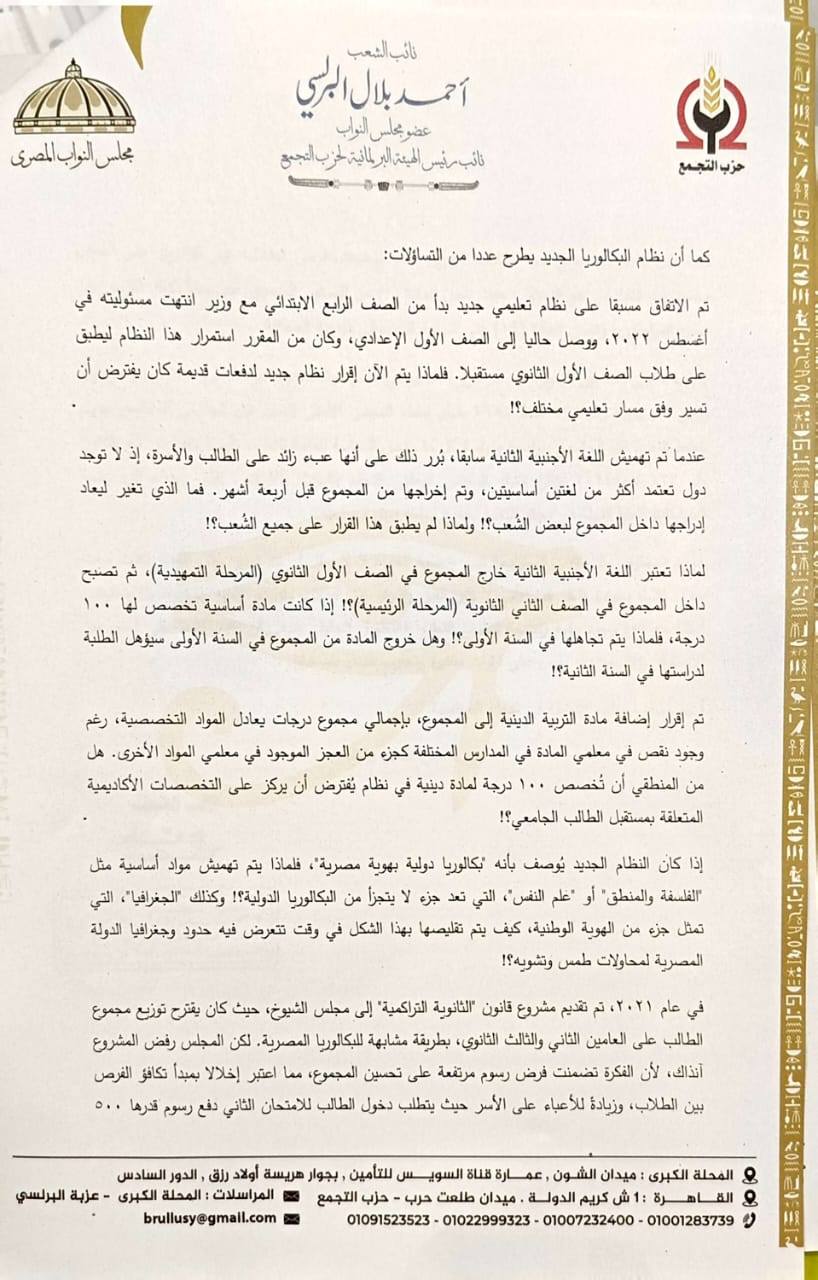 نائب الشعب
أحمد بلال البرلسي
عضو مجلس النواب
نائب رئيس الهيئة البرلمانية لحزب التجمع
مجلس النواب المصرى
حزب التجمع
كما أن نظام البكالوريا الجديد يطرح عددا من التساؤلات:
تم الاتفاق مسبقا على نظام تعليمي جديد بدأ من الصف الرابع الابتدائي مع وزير انتهت مسئوليته في
أغسطس ٢٠٢٢، ووصل حاليا إلى الصف الأول الإعدادي، وكان من المقرر استمرار هذا النظام ليطبق
على طلاب الصف الأول الثانوي مستقبلا. فلماذا يتم الآن إقرار نظام جديد لدفعات قديمة كان يفترض أن
تسير وفق مسار تعليمي مختلف؟!
عندما تم تهميش اللغة الأجنبية الثانية سابقا، بُرر ذلك على أنها عبء زائد على الطالب والأسرة، إذ لا توجد
دول تعتمد أكثر من لغتين أساسيتين، وتم إخراجها من المجموع قبل أربعة أشهر. فما الذي تغير ليعاد
إدراجها داخل المجموع لبعض الشُعب؟! ولماذا لم يطبق هذا القرار على جميع الشُعب؟!
لماذا تعتبر اللغة الأجنبية الثانية خارج المجموع في الصف الأول الثانوي (المرحلة التمهيدية)، ثم تصبح
داخل المجموع في الصف الثاني الثانوية (المرحلة الرئيسية)؟! إذا كانت مادة أساسية تخصص لها ١٠٠
درجة، فلماذا يتم تجاهلها في السنة الأولى؟! وهل خروج المادة من المجموع في السنة الأولى سيؤهل الطلبة
لدراستها في السنة الثانية؟!
تم إقرار إضافة مادة التربية الدينية إلى المجموع، بإجمالي مجموع درجات يعادل المواد التخصصية، رغم
وجود نقص في معلمي المادة في المدارس المختلفة كجزء من العجز الموجود في معلمي المواد الأخرى. هل
من المنطقي أن تُخصص ١٠٠ درجة لمادة دينية في نظام يُفترض أن يركز على التخصصات الأكاديمية
المتعلقة بمستقبل الطالب الجامعي؟!
إذا كان النظام الجديد يُوصف بأنه "بكالوريا دولية بهوية مصرية"، فلماذا يتم تهميش مواد أساسية مثل
"الفلسفة والمنطق" أو "علم النفس"، التي تعد جزء لا يتجزأ من البكالوريا الدولية؟! وكذلك "الجغرافيا"، التي
تمثل جزء من الهوية الوطنية، كيف يتم تقليصها بهذا الشكل في وقت تتعرض فيه حدود وجغرافيا الدولة
المصرية لمحاولات طمس وتشويه؟!
في عام ٢٠٢١، تم تقديم مشروع قانون "الثانوية التراكمية" إلى مجلس الشيوخ، حيث كان يقترح توزيع مجموع
الطالب على العامين الثاني والثالث الثانوي، بطريقة مشابهة للبكالوريا المصرية. لكن المجلس رفض المشروع
آنذاك، لأن الفكرة تضمنت فرض رسوم مرتفعة على تحسين المجموع، مما اعتبر إخلالا بمبدأ تكافؤ الفرص
بين الطلاب، وزيادةً للأعباء على الأسر حيث يتطلب دخول الطالب للامتحان الثاني دفع رسوم قدرها ٥٠٠
المحلة الكبرى : ميدان الشون , عمـارة قناة السويـس للتأمين , بجوار هريسة أولاد رزق , الدور السادس
القـاهـرة : 1 ش كريم الدولـة . ميدان طلعت حرب - حزب التجمع المراسلات : المحلة الكبرى - عزبة البرلسي
01001283739 - 01007232400 - 01022999323 - 01091523523 brullusy@gmail.com